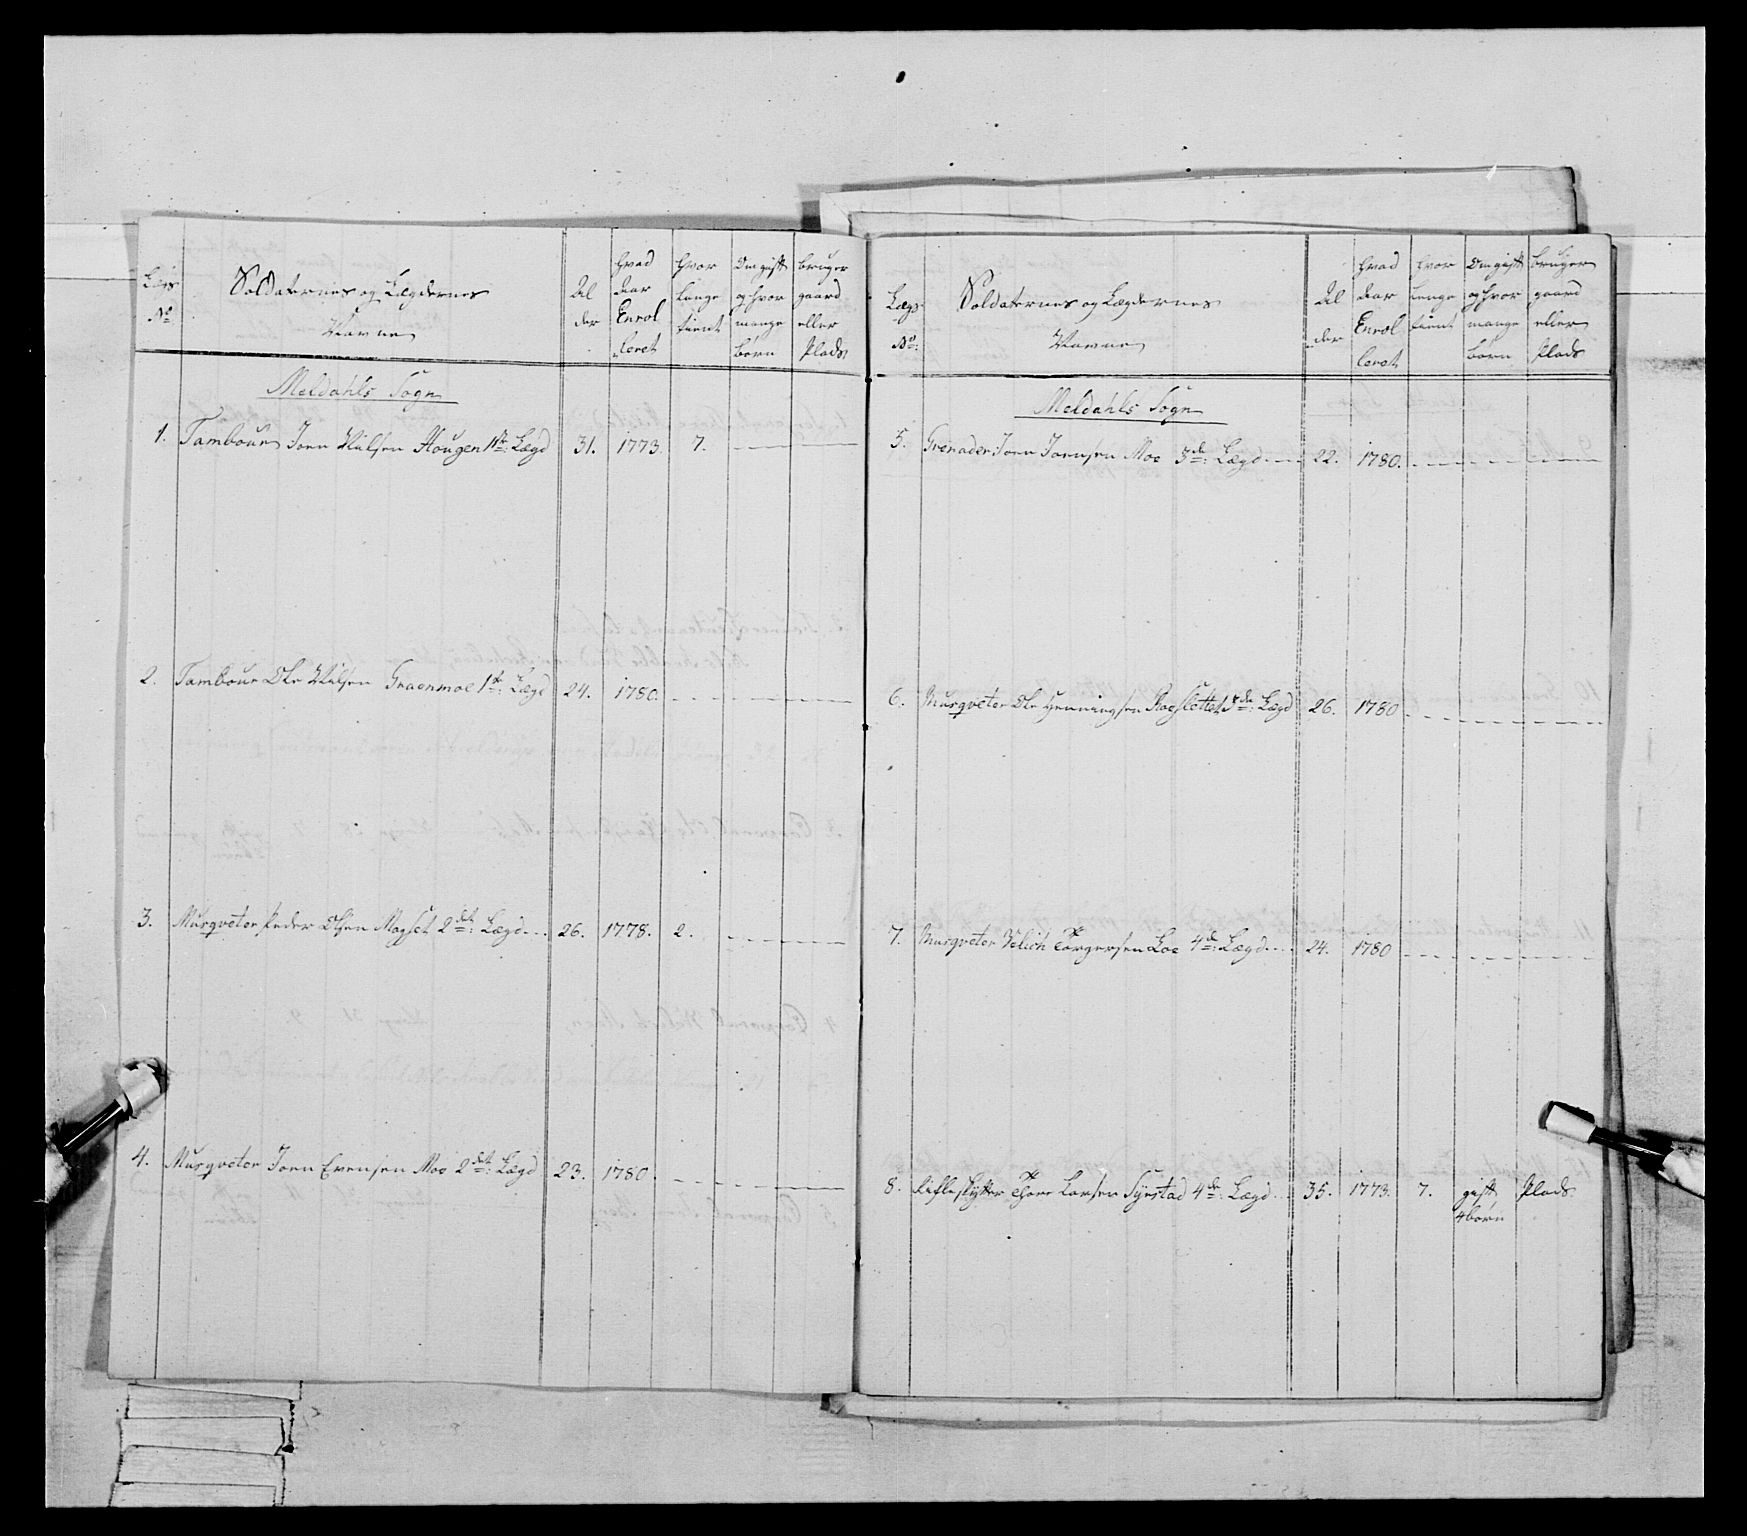 Lægs
No
Soldaternes og Lægdernes
Navne
Al
der
hvad
Aar
Enrol
leret
hvor
lenge
tient
Om gift
og hvor
mange
børn
bruger
gaard
eller
Plads
Meldahls Sogn
1. Tambour Joen Nielsen Hougen 1ste Lægd 31. 1773. 7. - - -
2. Tambour Ole Nielsen Graenmoe 1ste Lægd 24. 1780. - - -
3. Musqveter Peder Olsen Mogset 2det Lægd 26. 1778. 2. - - -
4. Musqveter Joen Evensen Moe 2det Lægd 23. 1780. - - -
Lægs
No
Soldaternes og Lægdernes
Navne
Al
der
hvad
Aar
Enrol
leret
hvor
lenge
tient
Om gift
og hvor
mange
børn
bruger
gaard
eller
Plads
Meldahls Sogn
5. Grenader Joen Joensen Moe 3de Lægd 22. 1780. - - -
6. Musqveter Ole Henningsen 3de Lægd 26. 1780 - - -
7. Musqveter Torgersen Loe 4de Lægd 24. 1780 - - -
8. Riffleskytter Thore Larsen Syrstad 4de Lægd 35. 1773. 7. gift Plads
4 børn